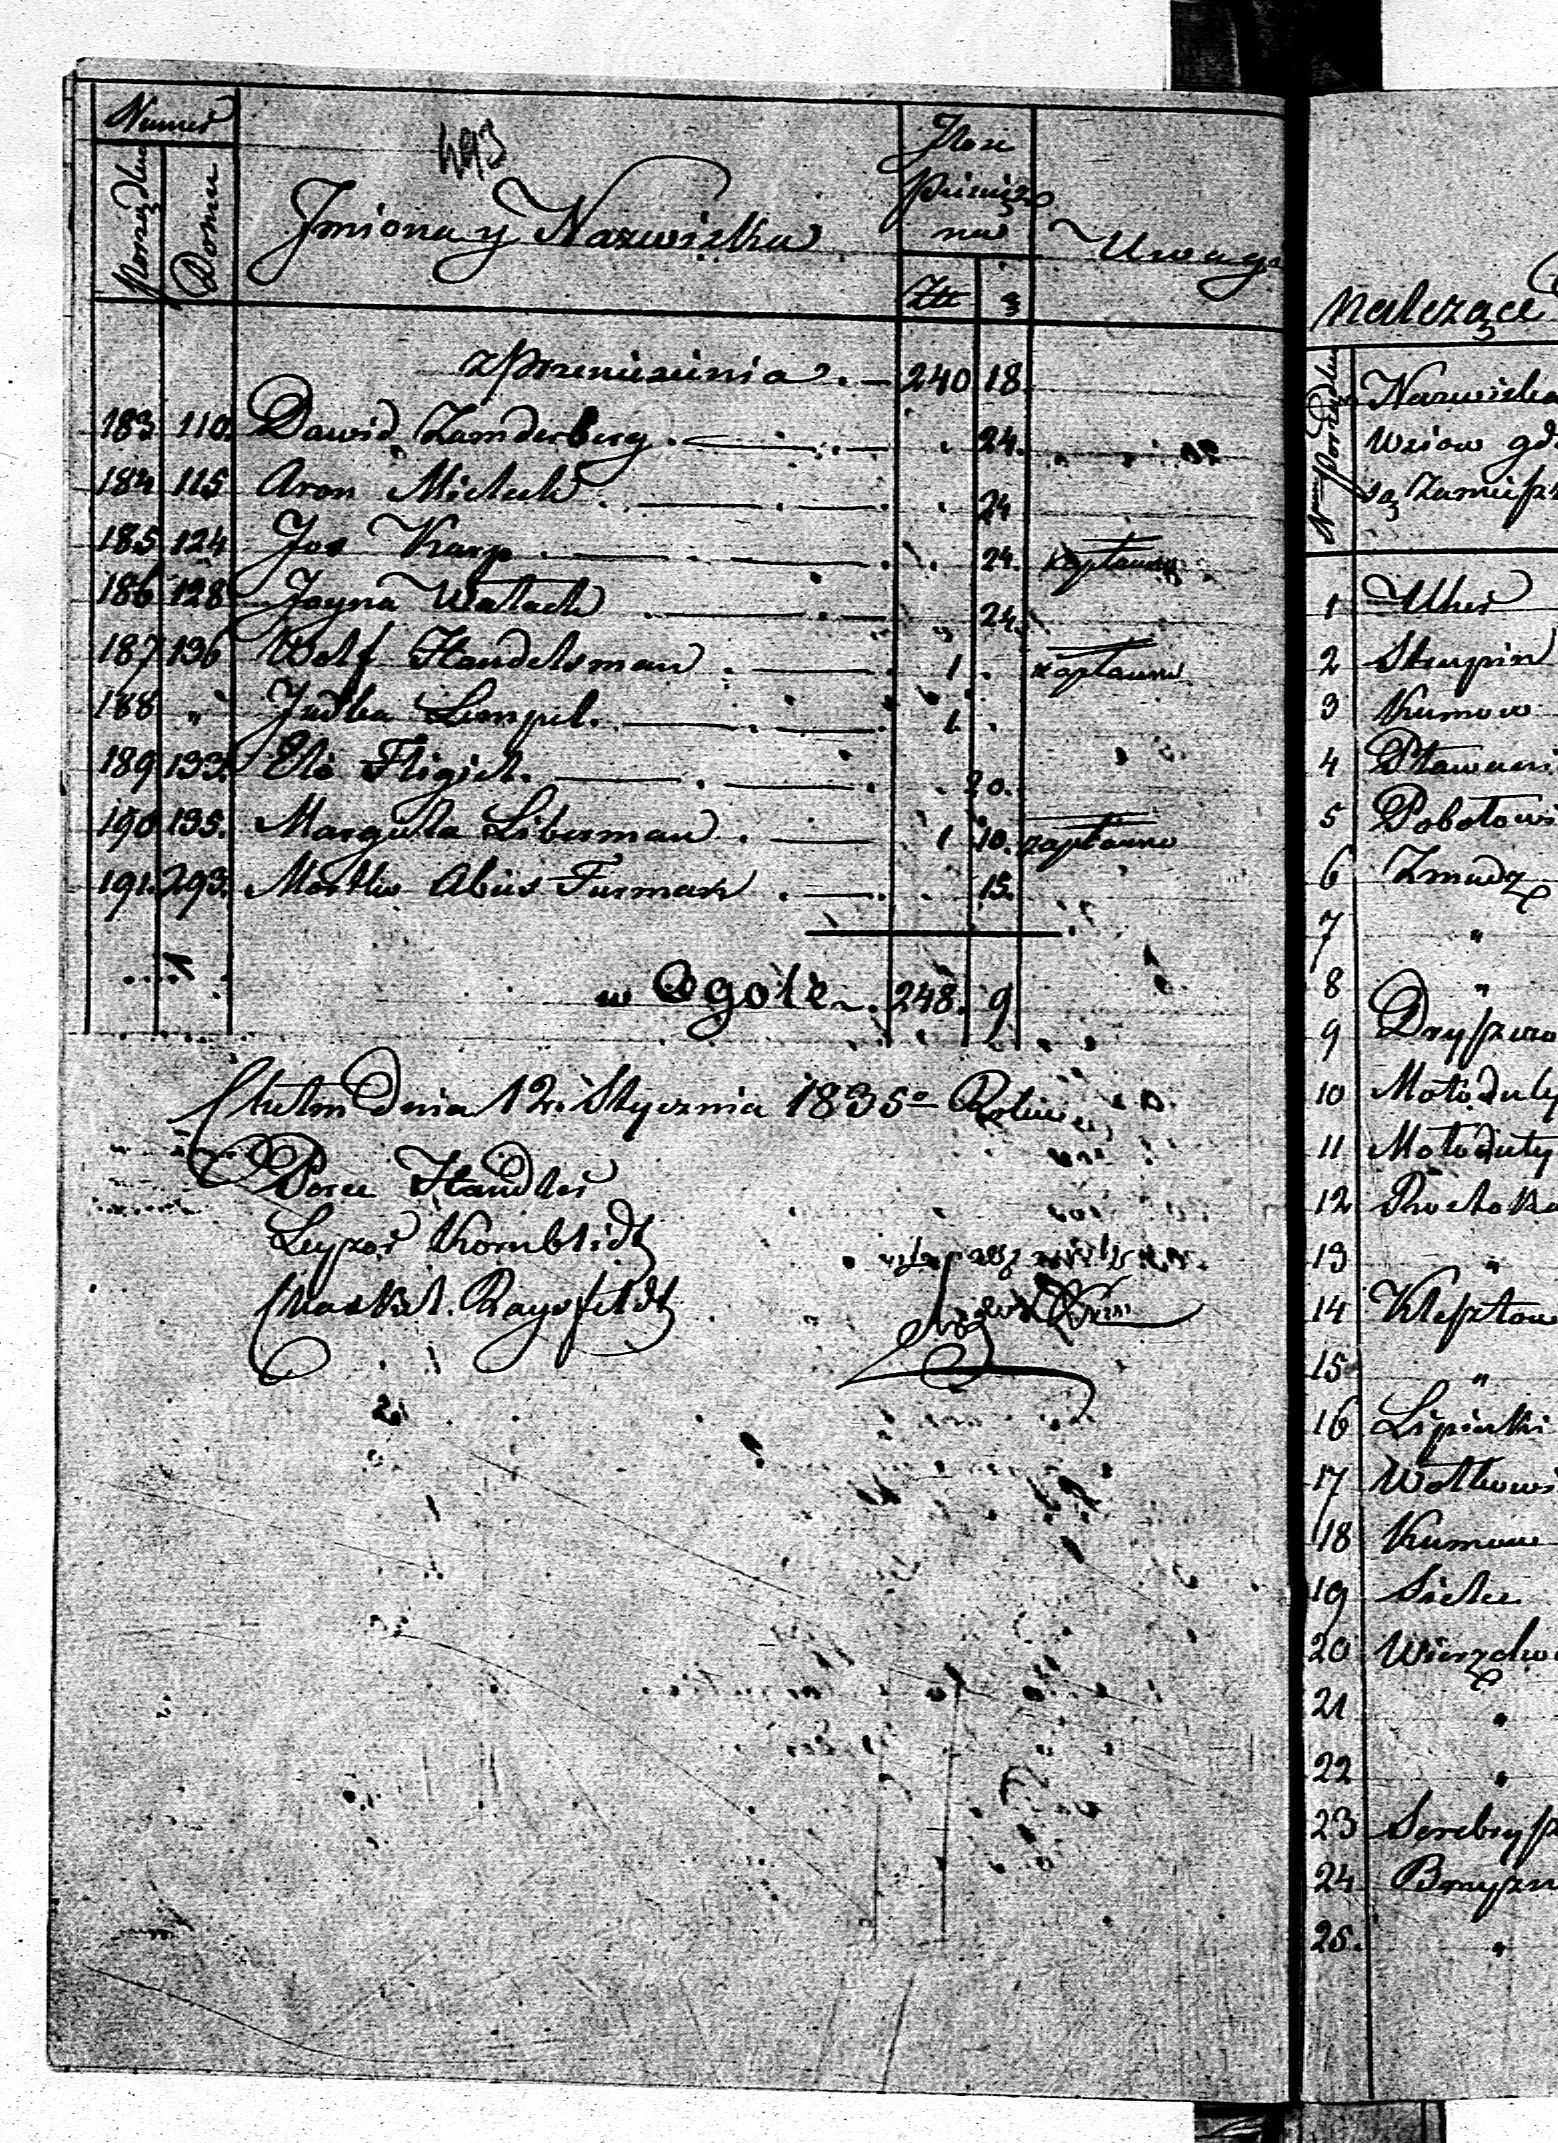 Numer
493
Porządku
Domu
Imiona y Nazwiska
Ilość
pienięż
na
Uwagi
Złt
g
z przeniesienia . — 240 18
183 110. Dawid Zamderberg . 24.
184 115 Aron Mielech . 24
185 124 Jos Karp . 24. zapłacono
186 128 Joyna Wałach . 24.
187 136 Wolf Handelsman . 1 . zapłacono
188 " Judka Lempel . 1 .
189 133. Elo Fligiel . 20.
190 135. Margula Liberman . 1 10. zapłacono
191. 293. Mortko Abus Furman . 15.
w Ogole . 248. 9
Chełm dnia 12. Stycznia 1835o Roku
Handler
Leyzor Kornblidt
Chaskiel Raysfeldt
należące
Num porządku
Nazwiska
wsiow gd
są Zamiesz
1 Uher
2 Stupin
3 Kumow
4 Pławani
5 Pobołowi
6 Zmudz
7 "
8 "
9 Dryszczo
10 Mołoduty
11 Mołoduty
12 Rostoka
13 "
14 Klesztow
15 "
16 Lipinki
17 Wołkowi
18 Kumow
19 Sielec
20 Wierzcho
21 "
22 "
23 Serebrysz
24 Brzyzn
25. "